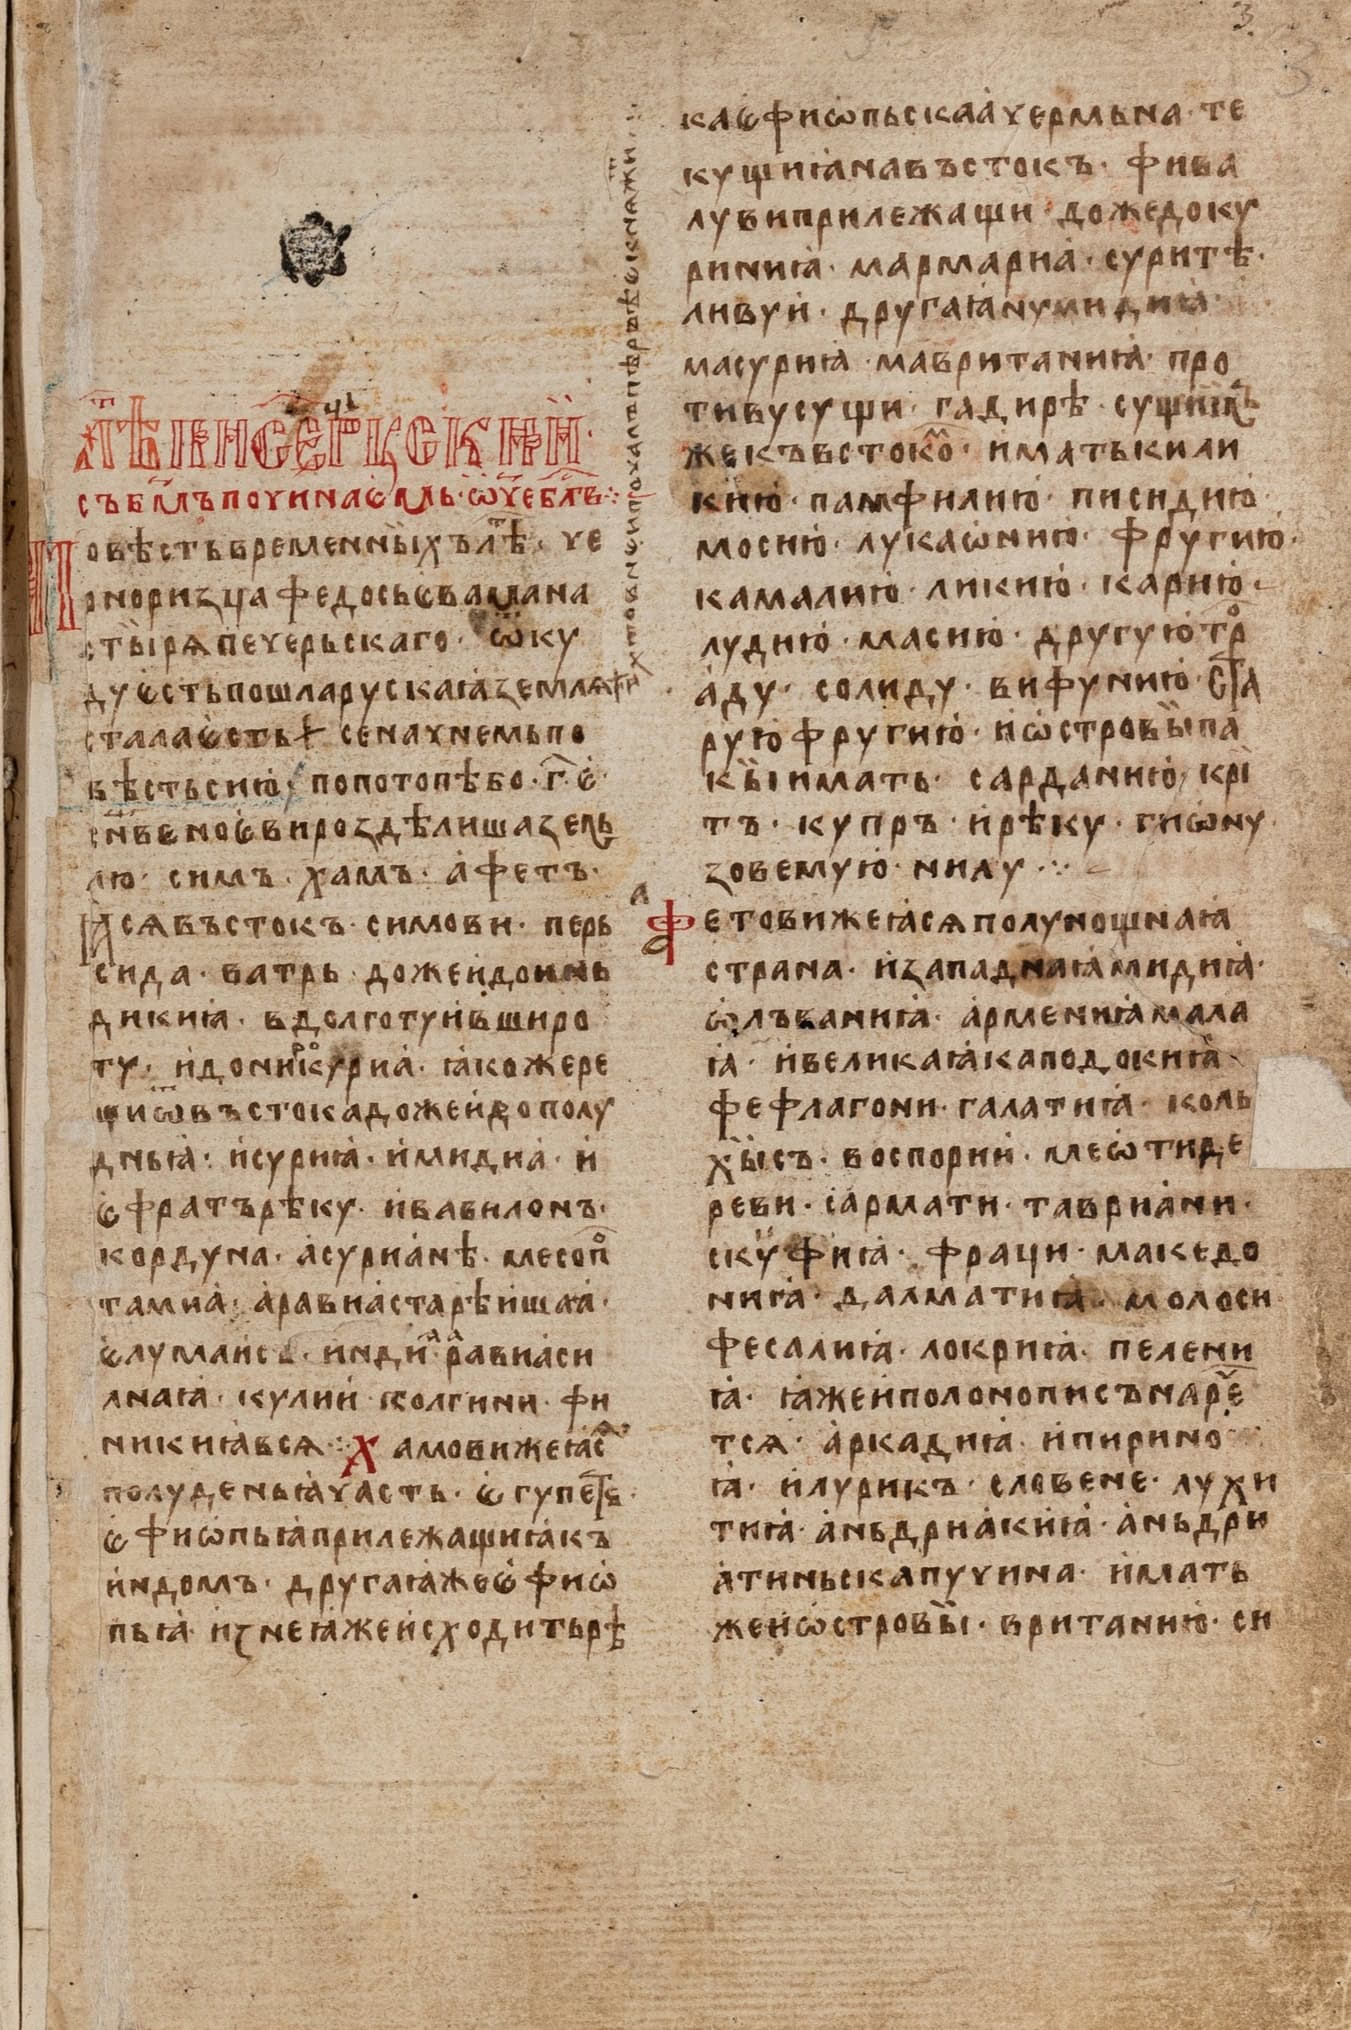 лѣтописець рꙋскии
съ бм҃ъ починаемь· ѿч҃е бл҃гв·:·
Повѣсть временныхъ лѣт҃· че
рноризца федосьева мана
стырѧ печерьскаго· ѿку
ду есть пошла рускаꙗ землѧ
стала есть· се начнемь по
вѣсть сию· по потопѣ бо· г҃· е·
сн҃ве ноеви роздѣлиша земь
лю· симъ· хамъ· афетъ·
ꙗсѧ въстокъ· симови· перь
сида· ватрь· доже и до инь
дикиꙗ· в долготу и в широ
ту· и до никурⷪ҇риа· ꙗкоже ре
щи ѿ въстока доже и до полу
дньꙗ· и суриꙗ· и мидиа· и
ефратъ рѣку· и вавилонъ·
кордуна· асуриане· месопо
тамиа· аравиа старѣишаа·
елумаис· инди· равиа си
лнаꙗ· кулии· колгини· фи
никиꙗ всѧ·:· Хамови же ꙗсѧ
полуденьꙗ часть· егупетъ·
ефиѡпьꙗ прилежащиꙗ къ
индомъ· другаꙗ же ефиѡ
пьꙗ· из неꙗ же исходить рѣ
ка ефиѡпьскаа чермьна· те
кущиꙗ на въстокъ· фива
луви прилежащи· доже до ку
риниꙗ· мармариа· суритѣ·
ливуи· другаꙗ нумидиꙗ·
масуриꙗ· мавританиꙗ· про
тиву сущи· гадирѣ· сущиихъ
же къ встокоⷨ· имать кили
кию· памфилию· писидию·
мосию· лукаѡнию· фругию·
камалию· ликию· карию·
лудию· масию· другую трⷪ
аду· солиду· вифунию· ста
рую фругию· и ѡстровы па
кы имать· сарданию· кри
тъ· купръ· и рѣку· гиѡну
зовемую· нилу·:·
Афетови же ꙗсѧ полунощнаꙗ
страна· и западнаꙗ мидиꙗ·
ѡлъваниꙗ· армениꙗ мала
ꙗ· и великаꙗ каподокиꙗ·
фефлагони· галатиꙗ· коль
хысъ· воспории· меѡти де
реви· сармати· тавриани·
скуфиꙗ· фраци· македо
ниꙗ· далматиꙗ· молоси
фесалиꙗ· локриꙗ· пелени
ꙗ· ꙗже и полонопись наре
тсѧ· аркадиꙗ· ипирино
ꙗ· илурикъ· словене· лухи
тиꙗ· аньдриакиꙗ· аньдри
атиньска пучина· имать
же и ѡстровы· вританию· си